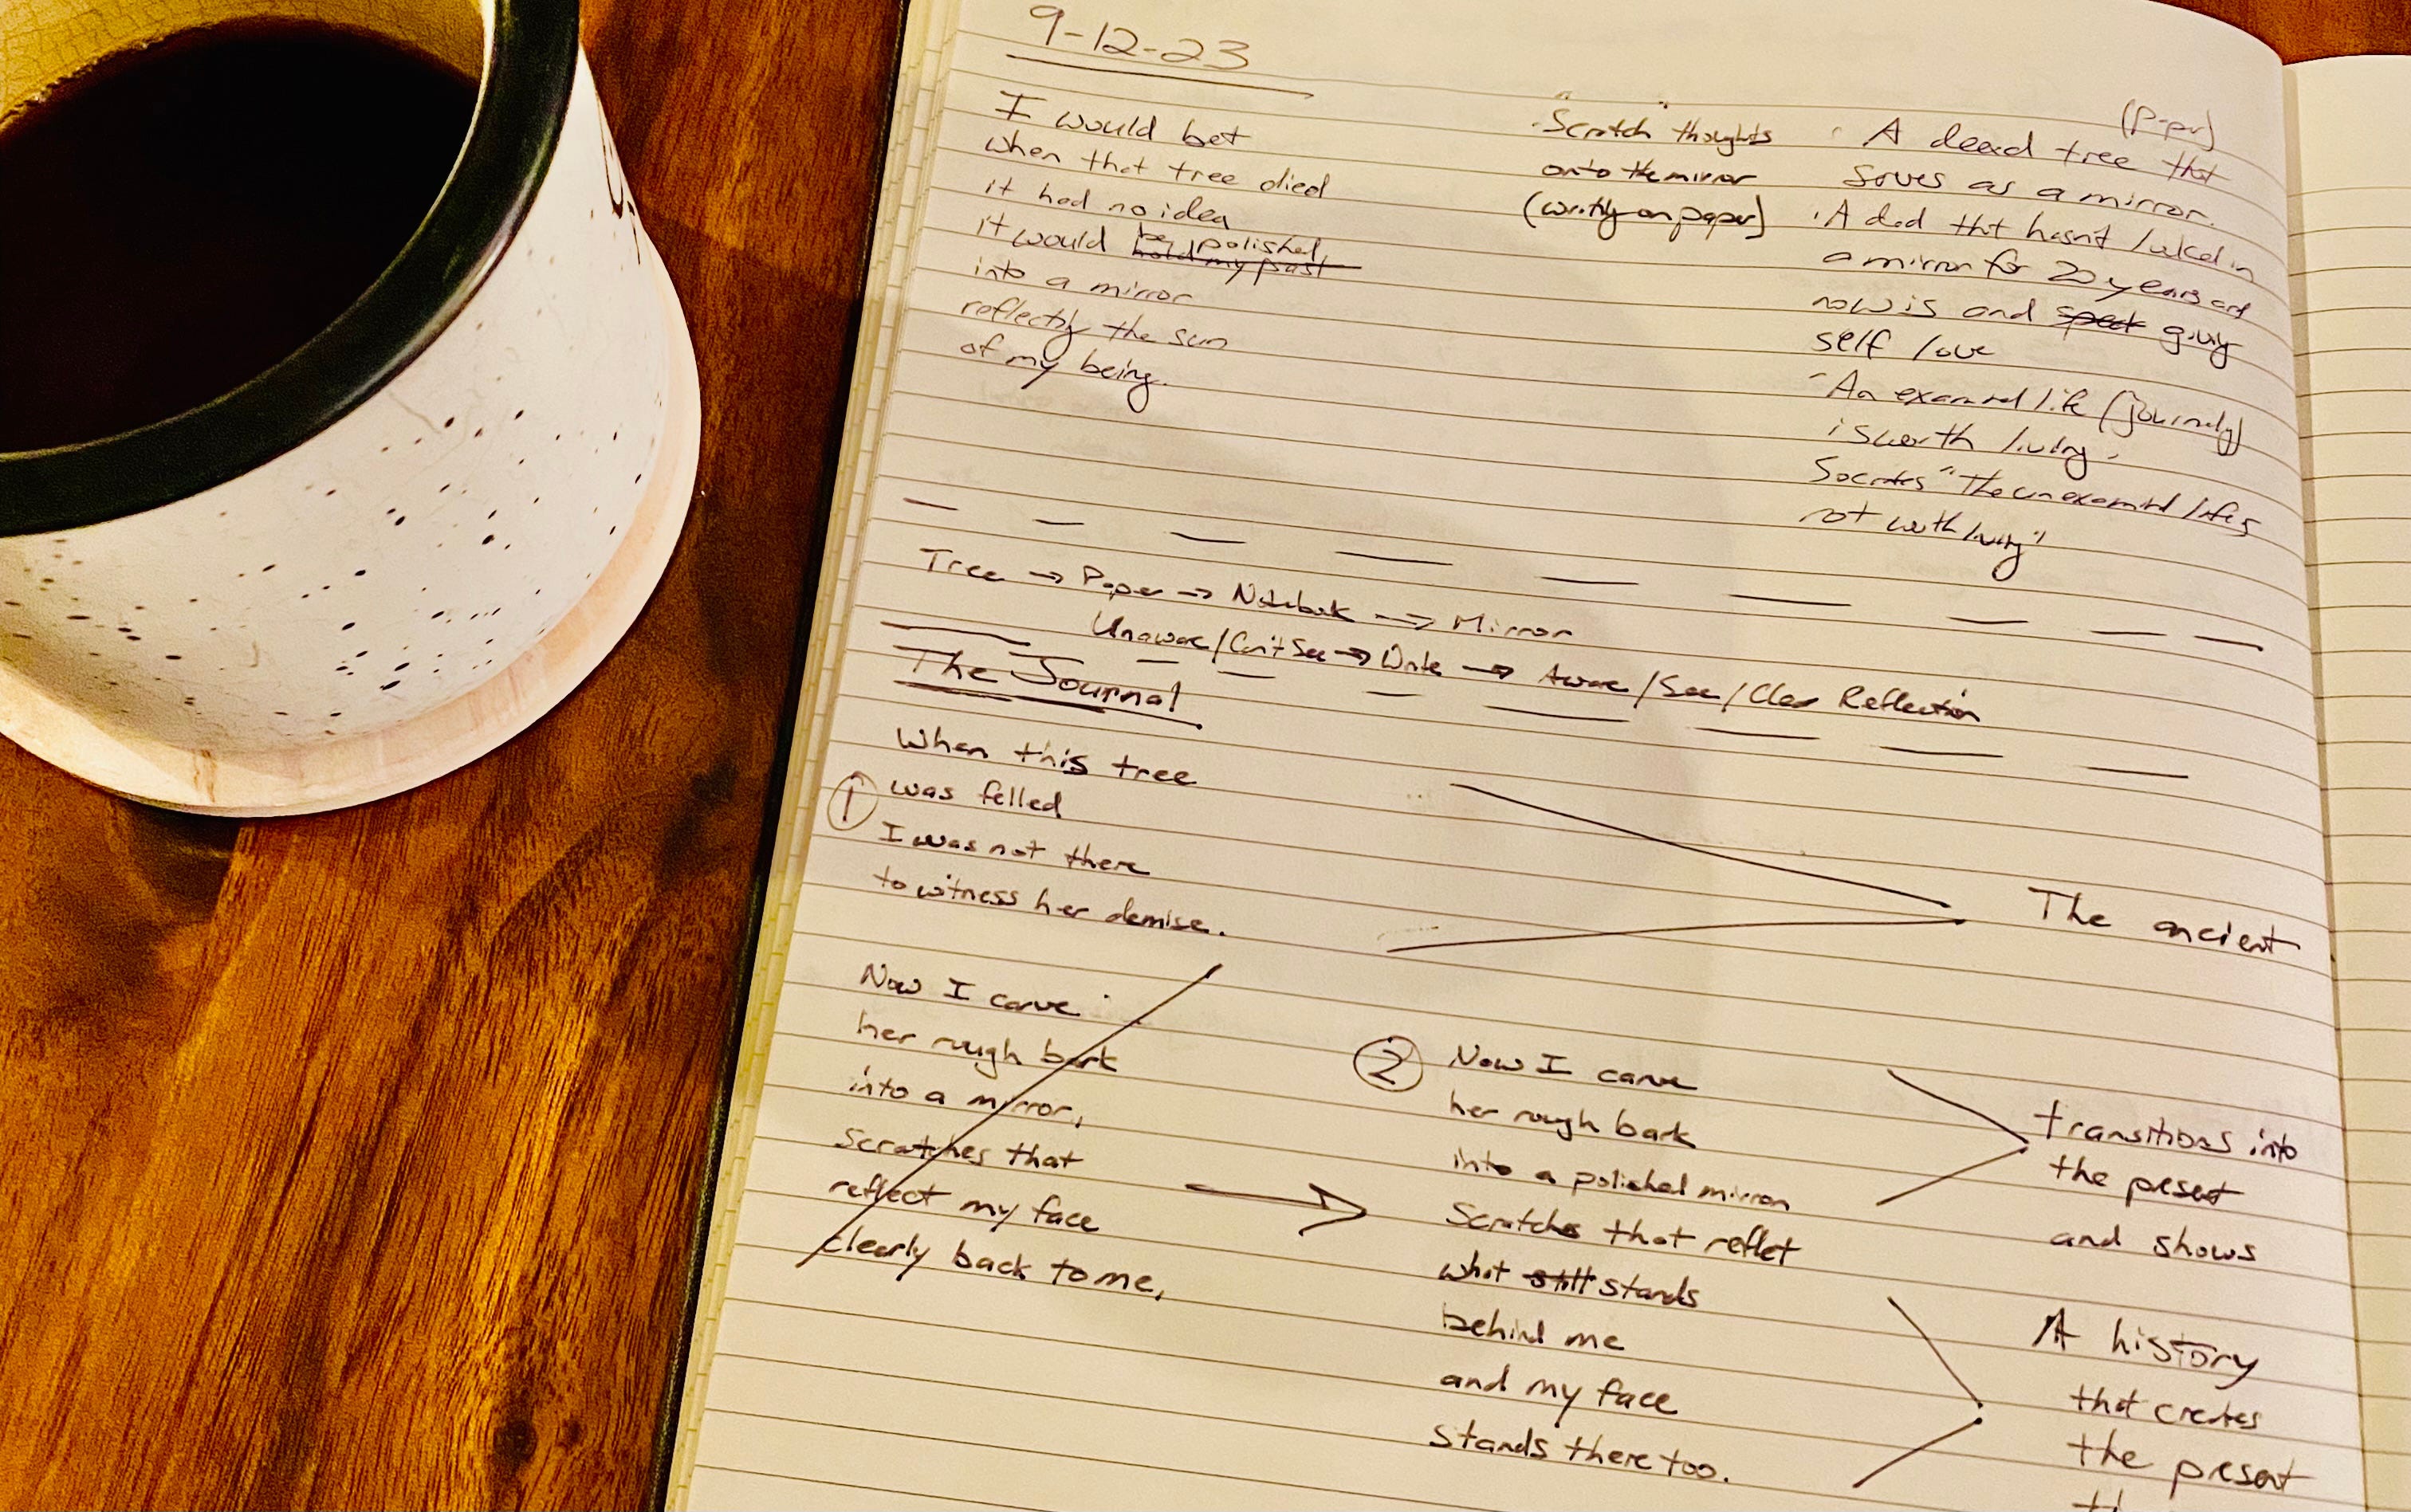 9-12-23
I would bet
when that tree died
it had no idea
it would be polished,
hold my past
into a mirror
reflecting the sun
of my being.
"Scratch" thoughts
onto the mirror
(writing on paper)
A dead tree that
serves as a mirror.
A dad that hasn't looked in
a mirror for 20 years and
now is and giving
self love
"An examined life (journaling)
is worth living"
Socrates "The unexamined life is
not worth living"
Tree → Paper → Notebook → Mirror
Unaware/Can't See → Write → Aware/See/Clear Reflection
The Journal
① When this tree
was felled
I was not there
to witness her demise.
The ancient
Now I carve
her rough bark
into a mirror,
scratches that
reflect my face
clearly back to me,
→
② Now I carve
her rough bark
into a polished mirror
Scratches that reflet
what still stands
behind me
and my face
stands there too.
transitions into
the present
and shows
A history
that creates
the present